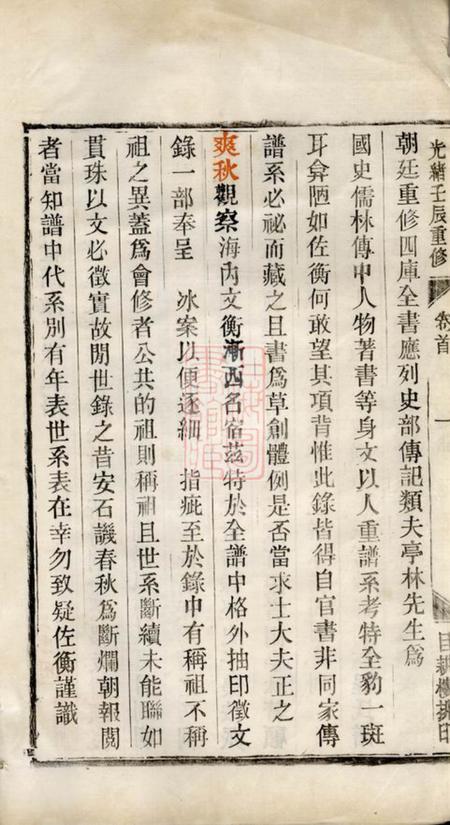 光緒壬辰重修
卷首
一
朝廷重修四庫全書應列史部傳記類夫亭林先生爲
國史儒林傳中人物著書等身文以人重譜系考特全豹一斑
耳弇陋如佐衡何敢望其項背惟此錄皆得自官書非同家傳
譜系必祕而藏之且書爲草創體例是否當求士大夫正之
爽秋觀察海內文衡漸西名宿茲特於全譜中格外抽印徵文
錄一部奉呈　冰案以便逐細　指疵至於錄中有稱祖不稱
祖之異蓋爲會修者公共的祖則稱祖且世系斷續未能聯如
貫珠以文必徵實故閒世錄之昔安石譏春秋爲斷爛朝報閱
者當知譜中代系別有年表世系表在幸勿致疑佐衡謹識